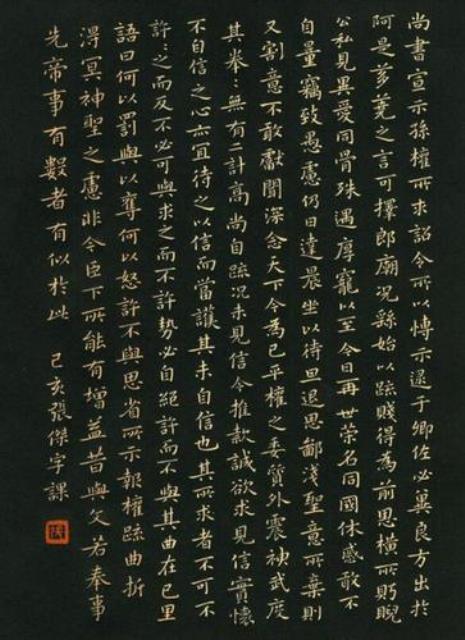 尚書宣示孫權所求詔令所以愽示逮于卿佐必冀良方出於
阿是芻蕘之言可擇郎廟況繇始以疏賤得為前恩横所眄睨
公私見異愛同骨殊遇厚寵以至今日再世榮名同國休慼敢不
自量竊致愚慮仍日達晨坐以待旦退思鄙淺聖意所棄則
又割意不敢獻聞深念天下今為已平權之委質外震神武度
其拳〻無有二計高尚自疏況未見信今推款誠欲求見信實懷
不自信之心亦冝待之以信而當護其未自信也其所求者不可不
許〻之而反不必可與求之而不許勢必自絕許而不與其曲在已里
語曰何以罰與以奪何以怒許不與思省所示報權疏曲折
得冝神聖之慮非今臣下所能有增益昔與文若奉事
先帝事有數者有似於此 己亥張傑字課